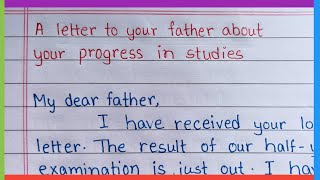 A letter to your father about
your progress in studies
My dear father,
I have received your lo
letter. The result of our half-y
examination is just out. I ha